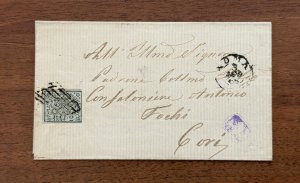 All' Illmo Signor
Padrone Colmo
Confaloniere Antonio
Fochi
Cori
ROMA